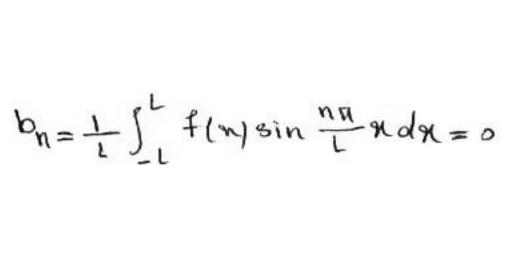 bₙ = 1/L ∫_{-L}^{L} f(x) sin nπ/L x dx = 0